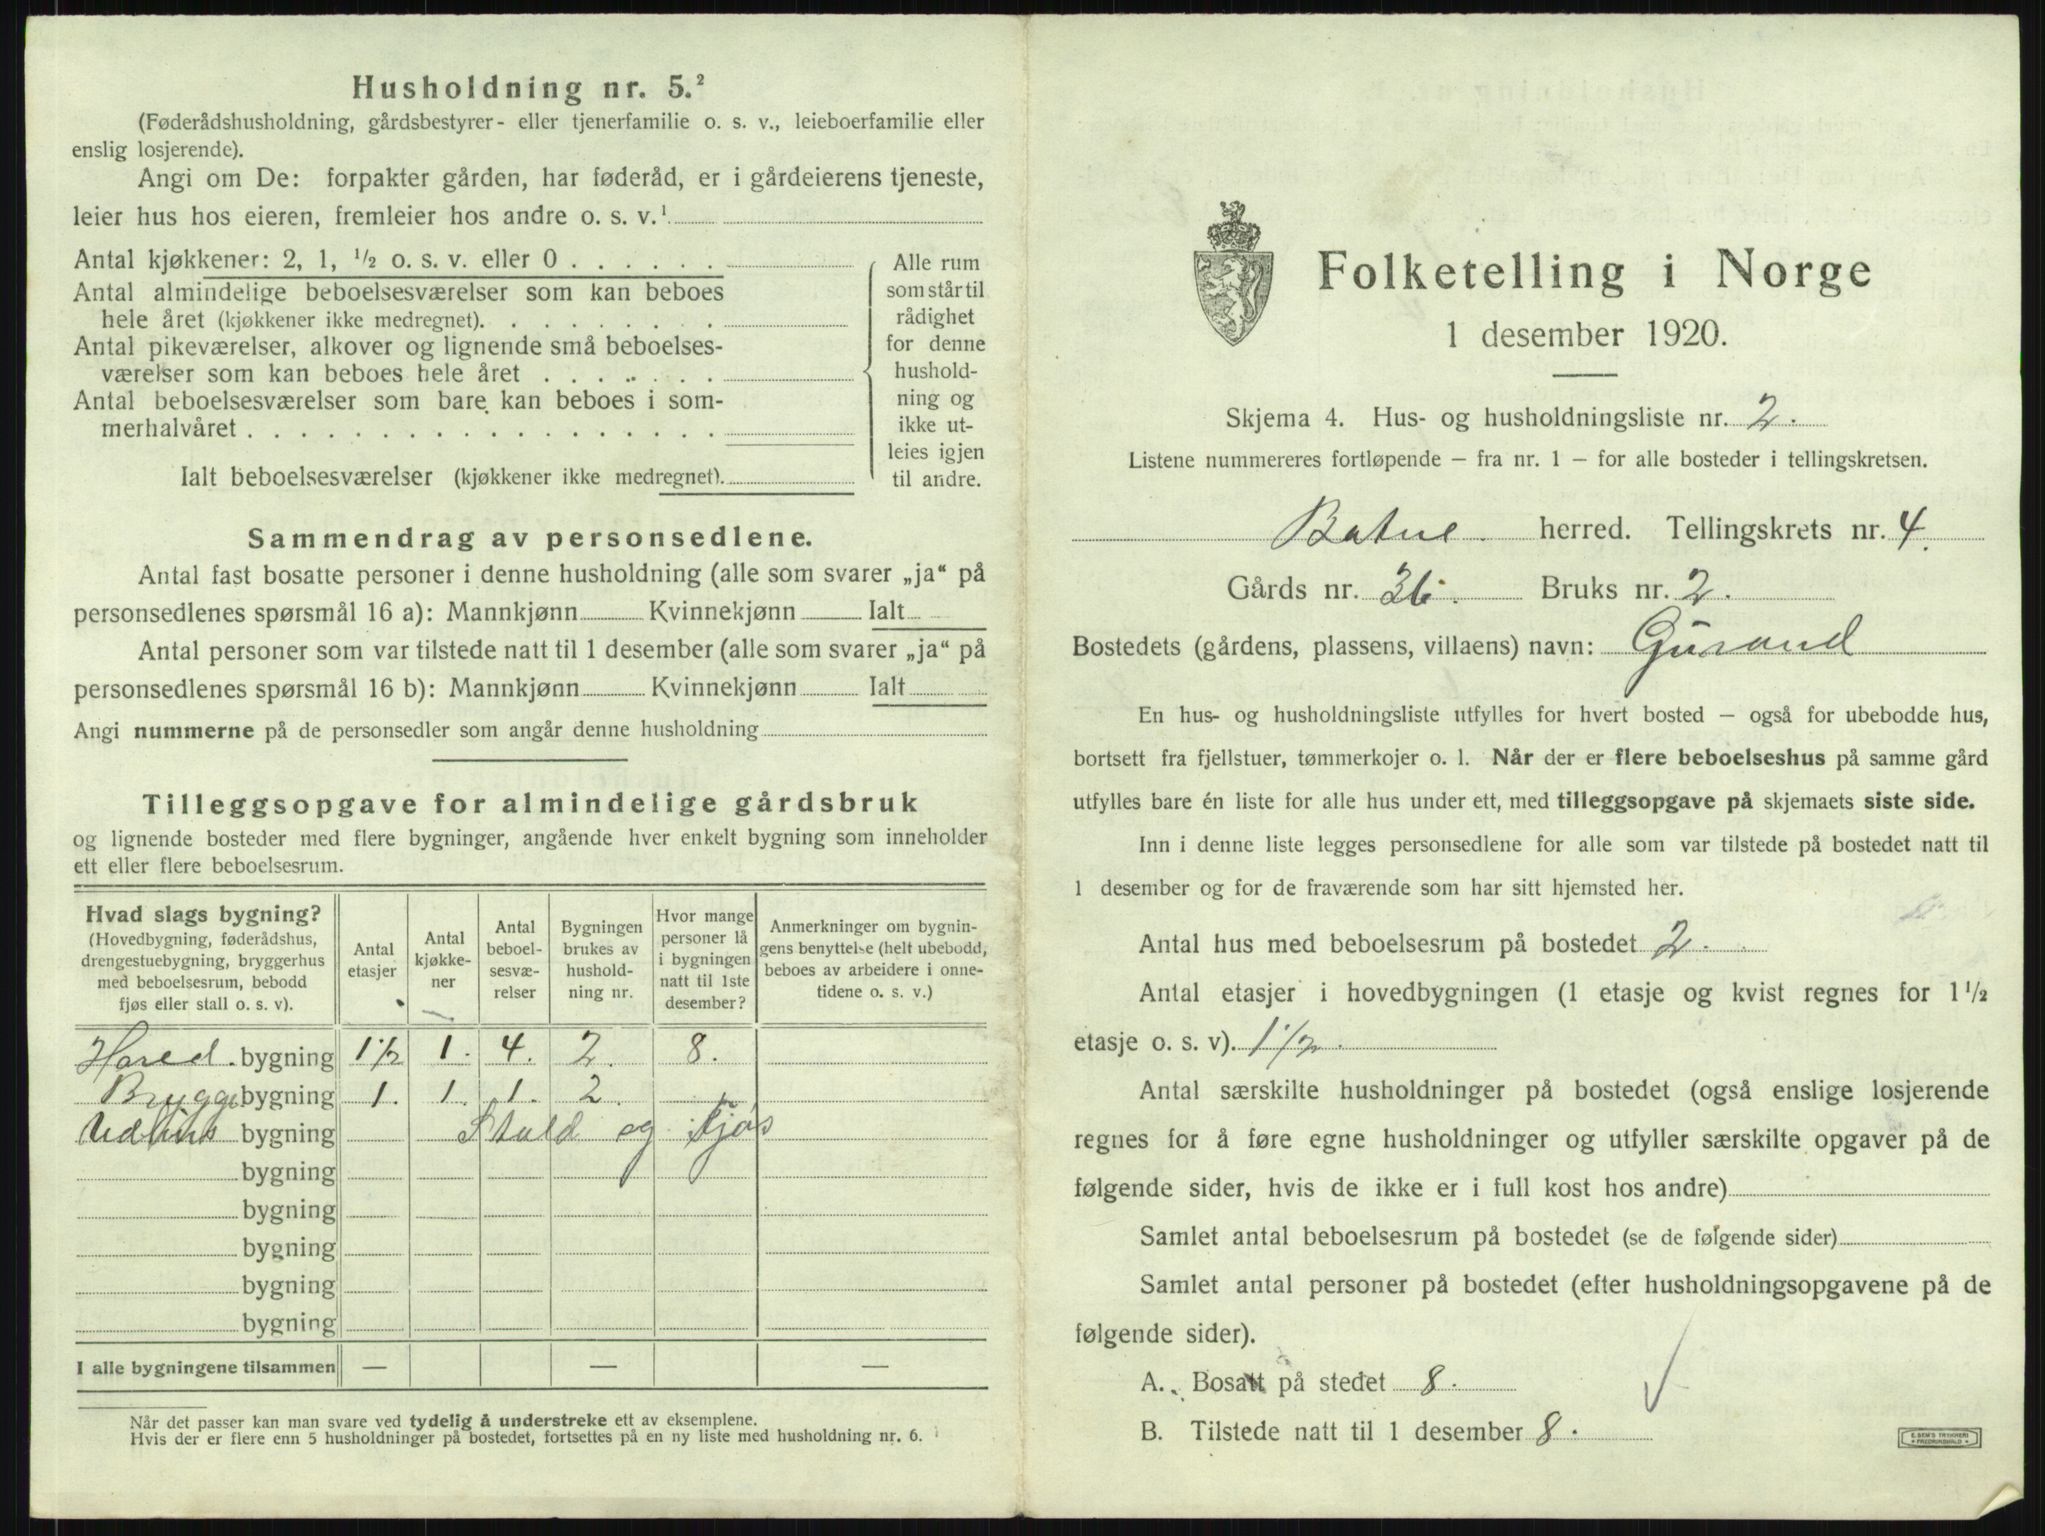 Husholdning nr. 5.²
(Føderådshusholdning, gårdsbestyrer- eller tjenerfamilie o. s. v., leieboerfamilie eller
enslig losjerende).
Angi om De: forpakter gården, har føderåd, er i gårdeierens tjeneste,
leier hus hos eieren, fremleier hos andre o. s. v.¹
Antal kjøkkener: 2, 1, ½ o. s. v. eller 0
Antal almindelige beboelsesværelser som kan beboes
hele året (kjøkkener ikke medregnet).
Antal pikeværelser, alkover og lignende små beboelses-
værelser som kan beboes hele året
Antal beboelsesværelser som bare kan beboes i som-
merhalvåret
Ialt beboelsesværelser (kjøkkener ikke medregnet).
Alle rum
som står til
rådighet
for denne
hushold-
ning og
ikke ut-
leies igjen
til andre.
Sammendrag av personsedlene.
Antal fast bosatte personer i denne husholdning (alle som svarer „ja“ på
personsedlenes spørsmål 16 a): Mannkjønn Kvinnekjønn Ialt
Antal personer som var tilstede natt til 1 desember (alle som svarer „ja“ på
personsedlenes spørsmål 16 b): Mannkjønn Kvinnekjønn Ialt
Angi nummerne på de personsedler som angår denne husholdning
Tilleggsopgave for almindelige gårdsbruk
og lignende bosteder med flere bygninger, angående hver enkelt bygning som inneholder
ett eller flere beboelsesrum.
Hvad slags bygning?
(Hovedbygning, føderådshus,
drengestuebygning, bryggerhus
med beboelsesrum, bebodd
fjøs eller stall o. s. v).
Antal
etasjer
Antal
kjøkke-
ner
Antal
beboel-
sesvæ-
relser
Bygningen
brukes av
hushold-
ning nr.
Hvor mange
personer lå
i bygningen
natt til 1ste
desember?
Anmerkninger om bygnin-
gens benyttelse (helt ubebodd,
beboes av arbeidere i onne-
tidene o. s. v.)
Hoved. bygning 1½ 1. 4. 2. 8.
Brygge bygning 1. 1. 1. 2.
Udhus bygning Stald og Fjøs
bygning
bygning
bygning
bygning
bygning
I alle bygningene tilsammen — — —
Når det passer kan man svare ved tydelig å understreke ett av eksemplene.
Hvis der er flere enn 5 husholdninger på bostedet, fortsettes på en ny liste med husholdning nr. 6.
Folketelling i Norge
1 desember 1920.
Skjema 4. Hus- og husholdningsliste nr. 2.
Listene nummereres fortløpende – fra nr. 1 – for alle bosteder i tellingskretsen.
Batne herred. Tellingskrets nr. 4.
Gårds nr. 36. Bruks nr. 2.
Bostedets (gårdens, plassens, villaens) navn: Gusand
En hus- og husholdningsliste utfylles for hvert bosted – også for ubebodde hus,
bortsett fra fjellstuer, tømmerkojer o. l. Når der er flere beboelseshus på samme gård
utfylles bare én liste for alle hus under ett, med tilleggsopgave på skjemaets siste side.
Inn i denne liste legges personsedlene for alle som var tilstede på bostedet natt til
1 desember og for de fraværende som har sitt hjemsted her.
Antal hus med beboelsesrum på bostedet 2.
Antal etasjer i hovedbygningen (1 etasje og kvist regnes for 1½
etasje o. s. v). 1½.
Antal særskilte husholdninger på bostedet (også enslige losjerende
regnes for å føre egne husholdninger og utfyller særskilte opgaver på de
følgende sider, hvis de ikke er i full kost hos andre)
Samlet antal beboelsesrum på bostedet (se de følgende sider)
Samlet antal personer på bostedet (efter husholdningsopgavene på de
følgende sider).
A. Bosatt på stedet 8.
B. Tilstede natt til 1 desember 8.
E. SEM'S TRYKKERI
FREDRIKSHALD